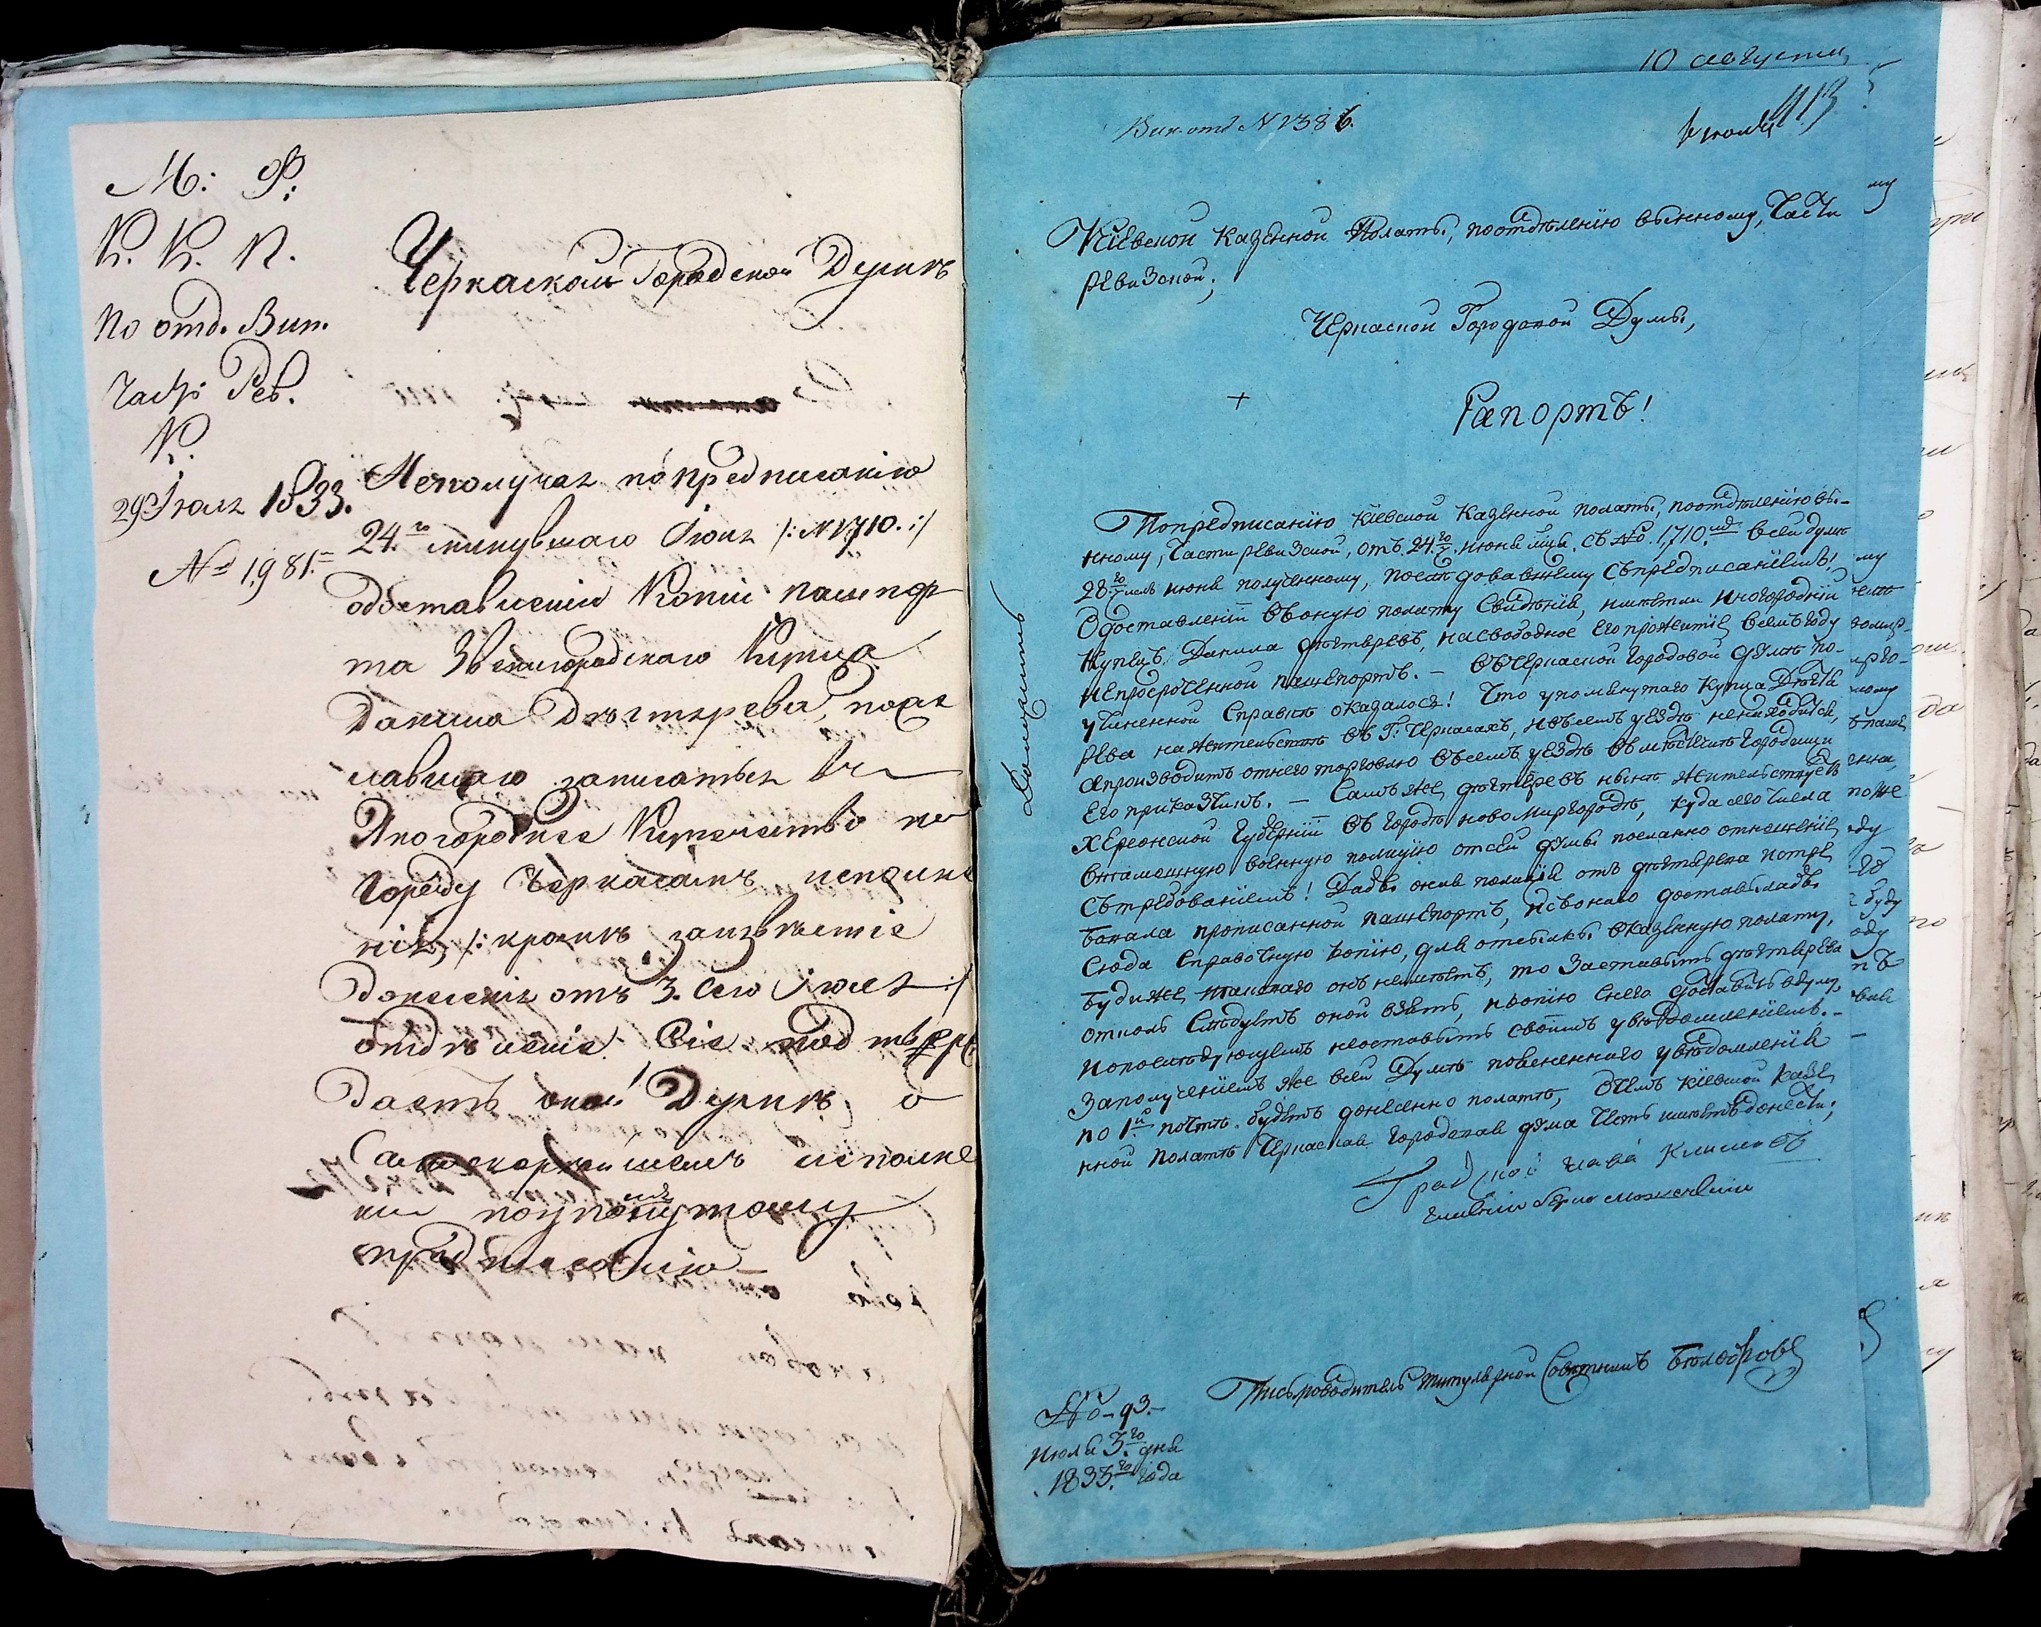 М: Ф:
К. К. П.
По отд. Вин.
Часть Рев.
К.
29 Iюля 1833.
№ 1,981.
Черкаской Городской Думѣ
Неполучая по предписанiю
24.го минувшаго Iюня /: № 1710. :/
одоставленiи Копiи пашпор
та Звенигородскаго Купца
Данила Дѣхтярева, поже
лавшаго записаться въ
Иногородние Купечество по
городу Черкасамъ исполне
нiя, /: кромѣ
донесенiя отъ 3. сего Iюля :/
Сiе подтверж
даетъ оной Думѣ о
Самоскорѣйшемъ исполне
нiи поупомянутому
предписанiю
10 августа
Вин. отд № 2386.
413
Кiевской Казенной Полаты, поотдѣленiю винному, Части
Ревизской;
Черкаской Городской Думы,
+
Рапортъ!
Попредписанiю Кiевской Казенной полаты, поотдѣленiю ви-
нному, Части ревизской, отъ 24.го июня мца. съ № 1,710.мъ всей думѣ
28.го июня полученному, последовавшему Съпредписанiемъ!
Одоставленiи въоную полату Свѣденiя, имѣетли иногороднiй
Купецъ Данила дѣхтяревъ, насвободное его прожитiе, всемъ году
непросроченной пашепортъ. — въЧеркаской городовой думѣ по-
учиненной Справкѣ оказалось! Что упомянутаго Купца Дѣхтя
рева нажительствѣ въ Г: Черкасахъ, ивъсемъ уездѣ ненаходится,
апроизводитъ отнего торговлю въсемъ уездѣ въмѣстечкѣ Городищи
Его прикащикъ. — Самъ же, дѣхтяревъ нынѣ жительствуетъ
Херсонской Губернiи въ городѣ новомиргородѣ, куда сего числа
втамошнюю военную полицiю отсей думы послано отношенiе
Сътребованiемъ! Дабы оная полицiя отъ дѣхтярева истре
бовала прописанной пашепортъ, исъонаго доставилабъ
Сюда Справочную копiю, для отсылки вказенную полату,
буди же, такаго онъ неимѣетъ, то Заставить дѣхтярева
отколь Слѣдуетъ оной взять, икопiю Снего доставить вдуму,
ипослѣдующемъ неоставить своимъ увѣдомленiемъ. —
Заполученiемъ же всей Думѣ увѣдомленiя
по 1й почтѣ будетъ донесенно полатѣ, Очемъ Кiевской казе
нной полатѣ Черкаская Городская дума Честь имѣетъ донести;
Градской глава Климовъ
Доложить
Письмоводитель титулярной Совѣтникъ
№ — 93. —
июля 3.го дня
1833.го года